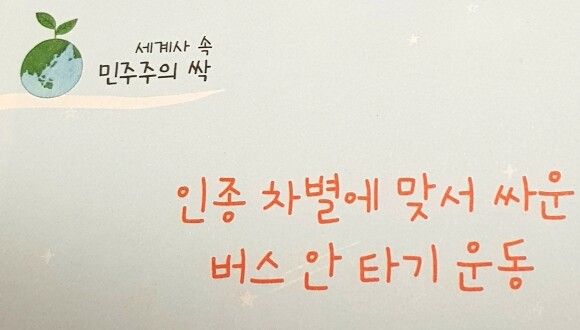 세계사 속
민주주의 싹
인종 차별에 맞서 싸운
버스 안 타기 운동